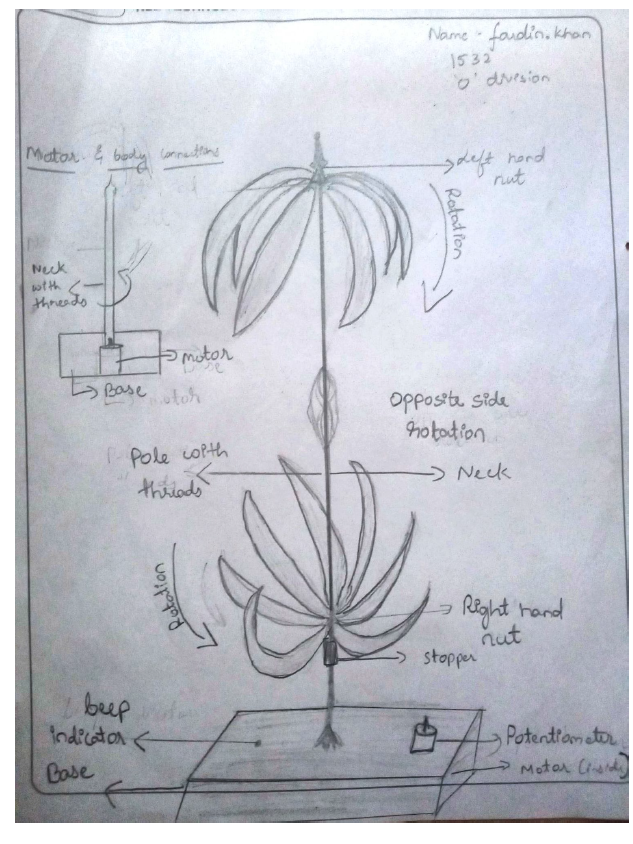 Name - fardin.khan
1532
'O' division
Motor & body connections
Left hand
nut
Rotation
Neck
with
threads
motor
Base
Opposite side
rotation
Pole with
threads
Neck
Rotation
Right hand
nut
stopper
beep
indicator
Potentiometer
Motor (inside)
Base